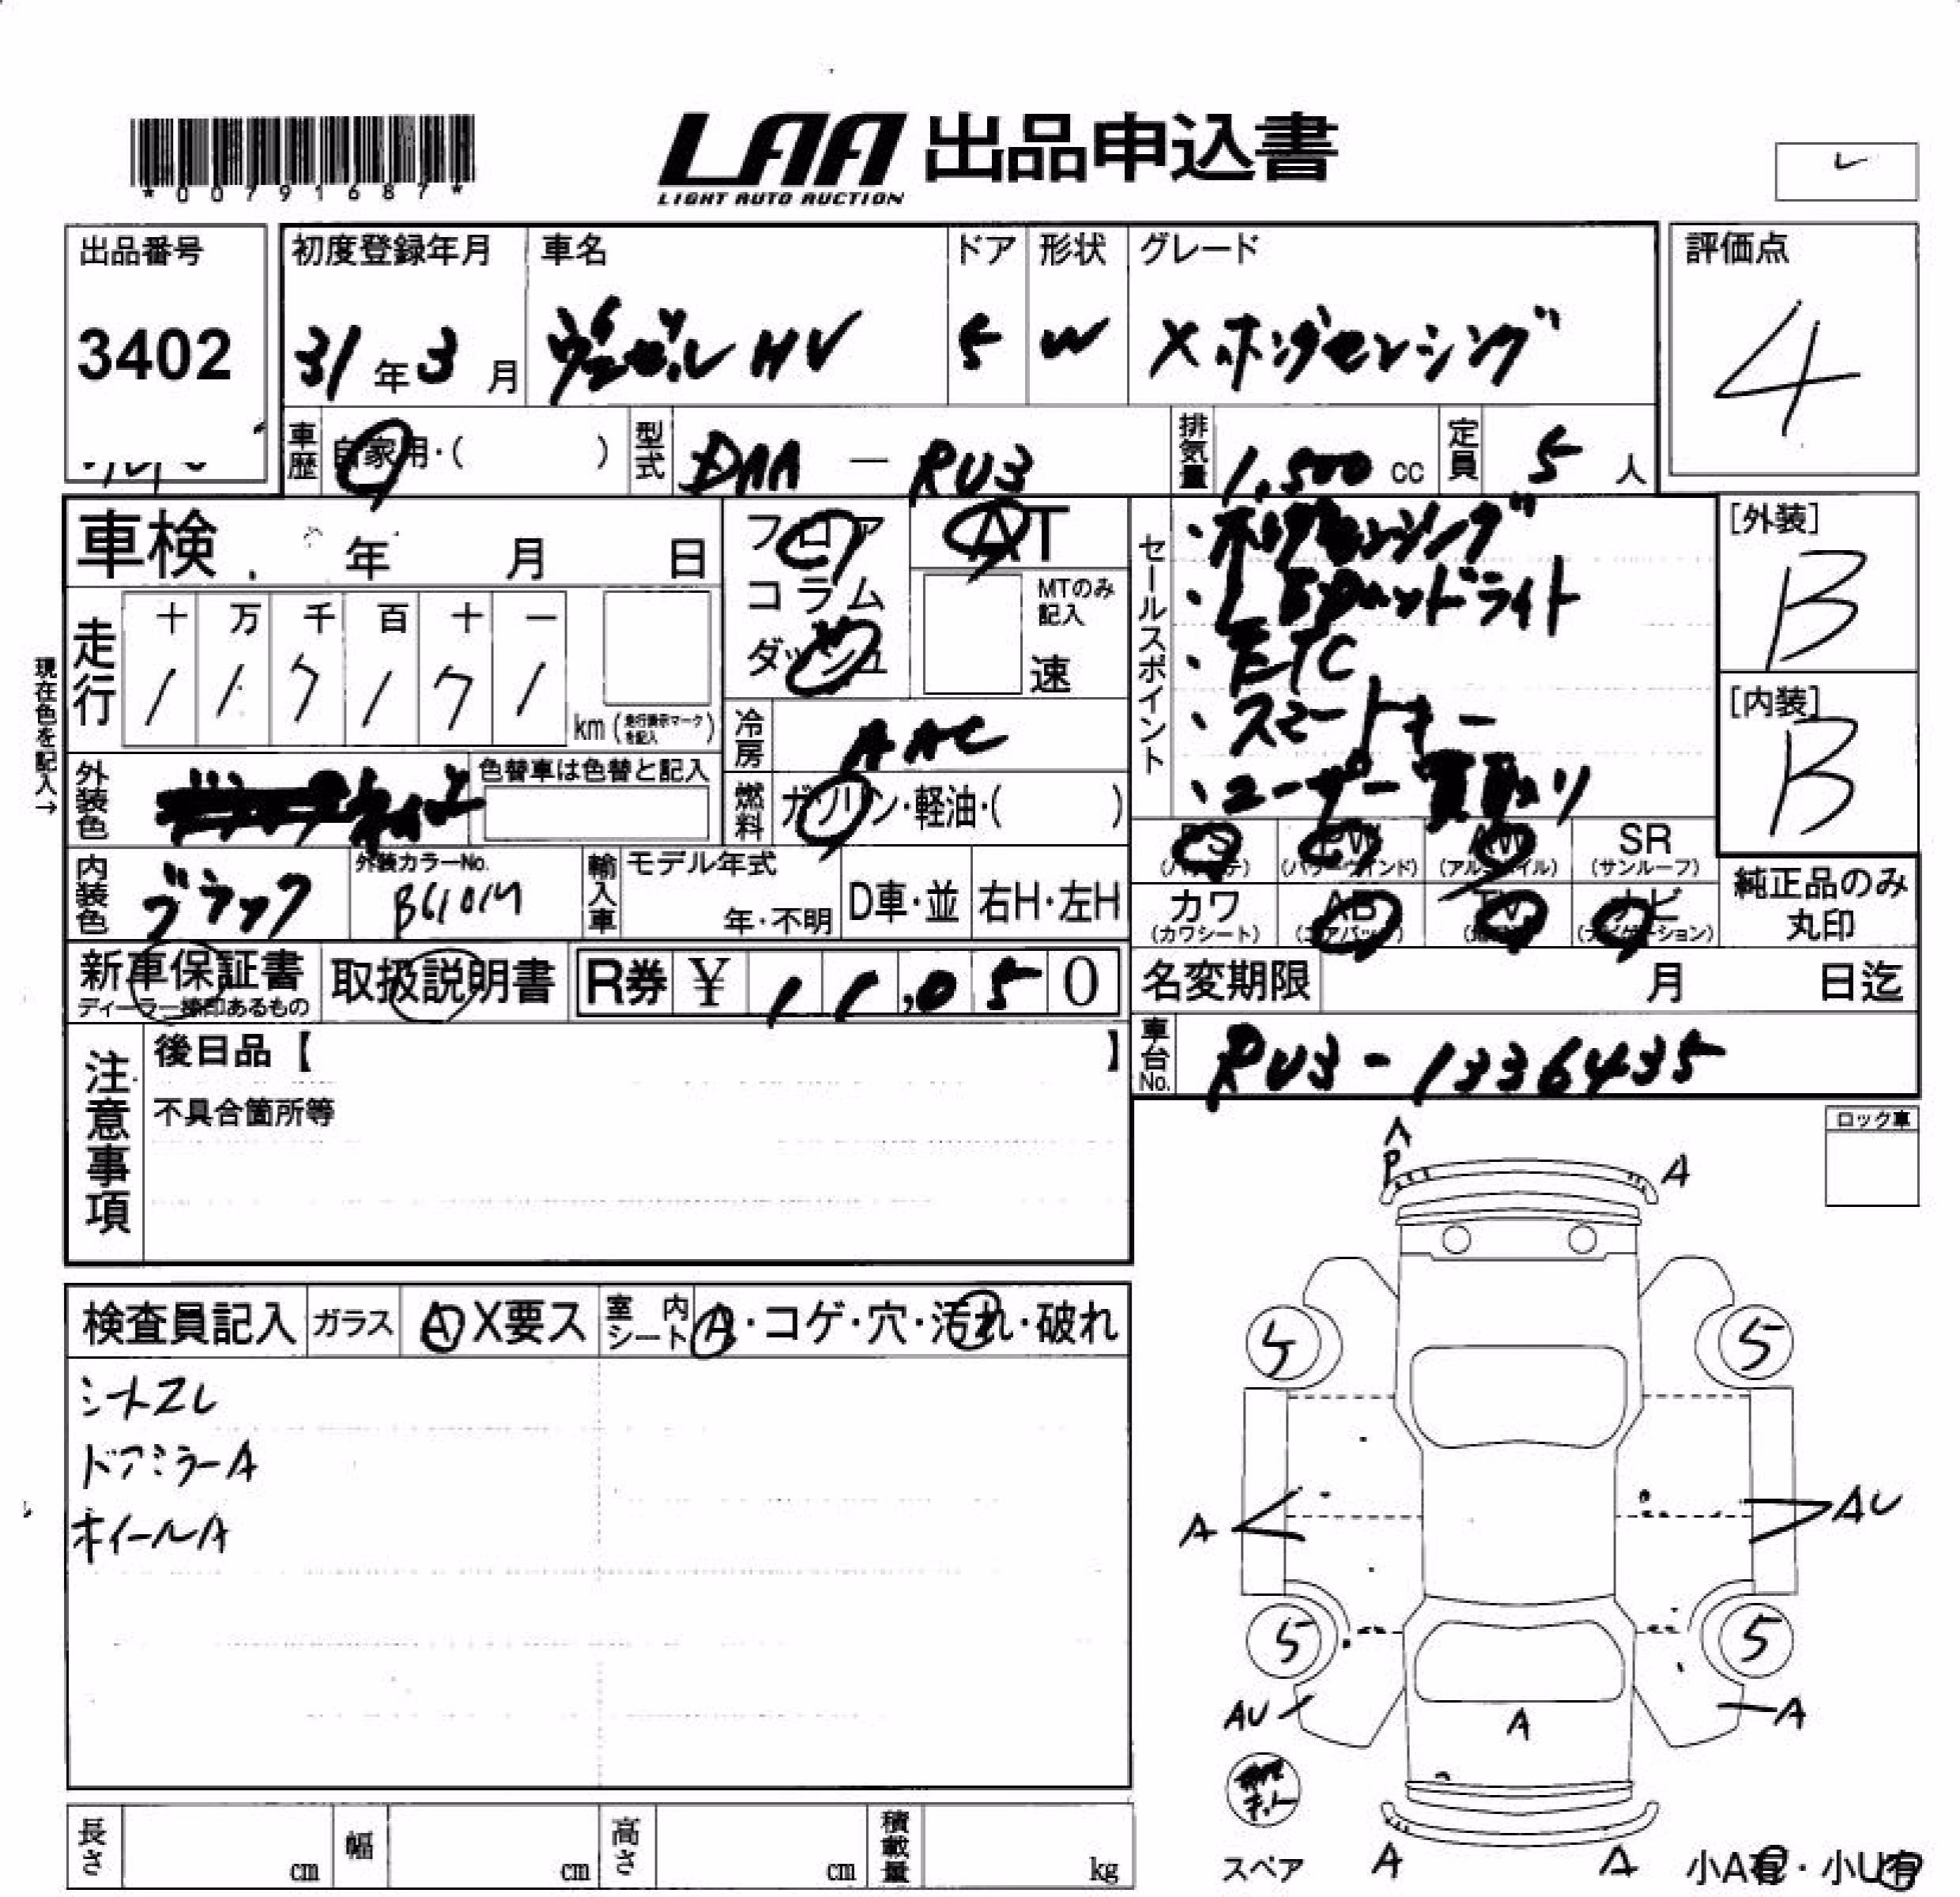 *00791687*
LAA 出品申込書
LIGHT AUTO AUCTION
レ
出品番号 初度登録年月 車名 ドア 形状 グレード 評価点
3402 31年 3月 ヴェゼル HV 5 W X ホンダセンシング 4
車歴 自家用・( ) 型式 DAA - RU3 排気量 1,500 cc 定員 5 人
車検 年 月 日 フロア AT
コラム MTのみ記入
ダッシュ 速
走行 十 万 千 百 十 一
1 1 7 1 7 1 km (走行表示マークを記入)
現在色を記入→
冷房 AAC
外装色 色替車は色替と記入
燃料 ガソリン・軽油・( )
セールスポイント
・ホンダセンシング
・LEDヘッドライト
・ETC
・スマートキー
・ユーザー買取り
[外装] B
[内装] B
PS PW AW SR
(パワステ) (パワーウインド) (アルミホイル) (サンルーフ)
カワ AB TV ナビ
(カワシート) (エアバック) (ナビゲーション)
純正品のみ丸印
内装色 ブラック 外装カラーNo. 輸入車 モデル年式 年・不明 D車・並 右H・左H
新車保証書 取扱説明書 R券 ¥ 11,050
ディーラー捺印あるもの
名変期限 月 日迄
車台No. RU3-1336435
注意事項 後日品【 】
不具合箇所等
ロック車
検査員記入 ガラス A X要ス 室内シート A・コゲ・穴・汚れ・破れ
シートスレ
ドアミラーA
ホイールA
P A
5 5
A AU
5 5
AU A A
スペア A A 小A有・小U有
長さ cm 幅 cm 高さ cm 積載量 kg